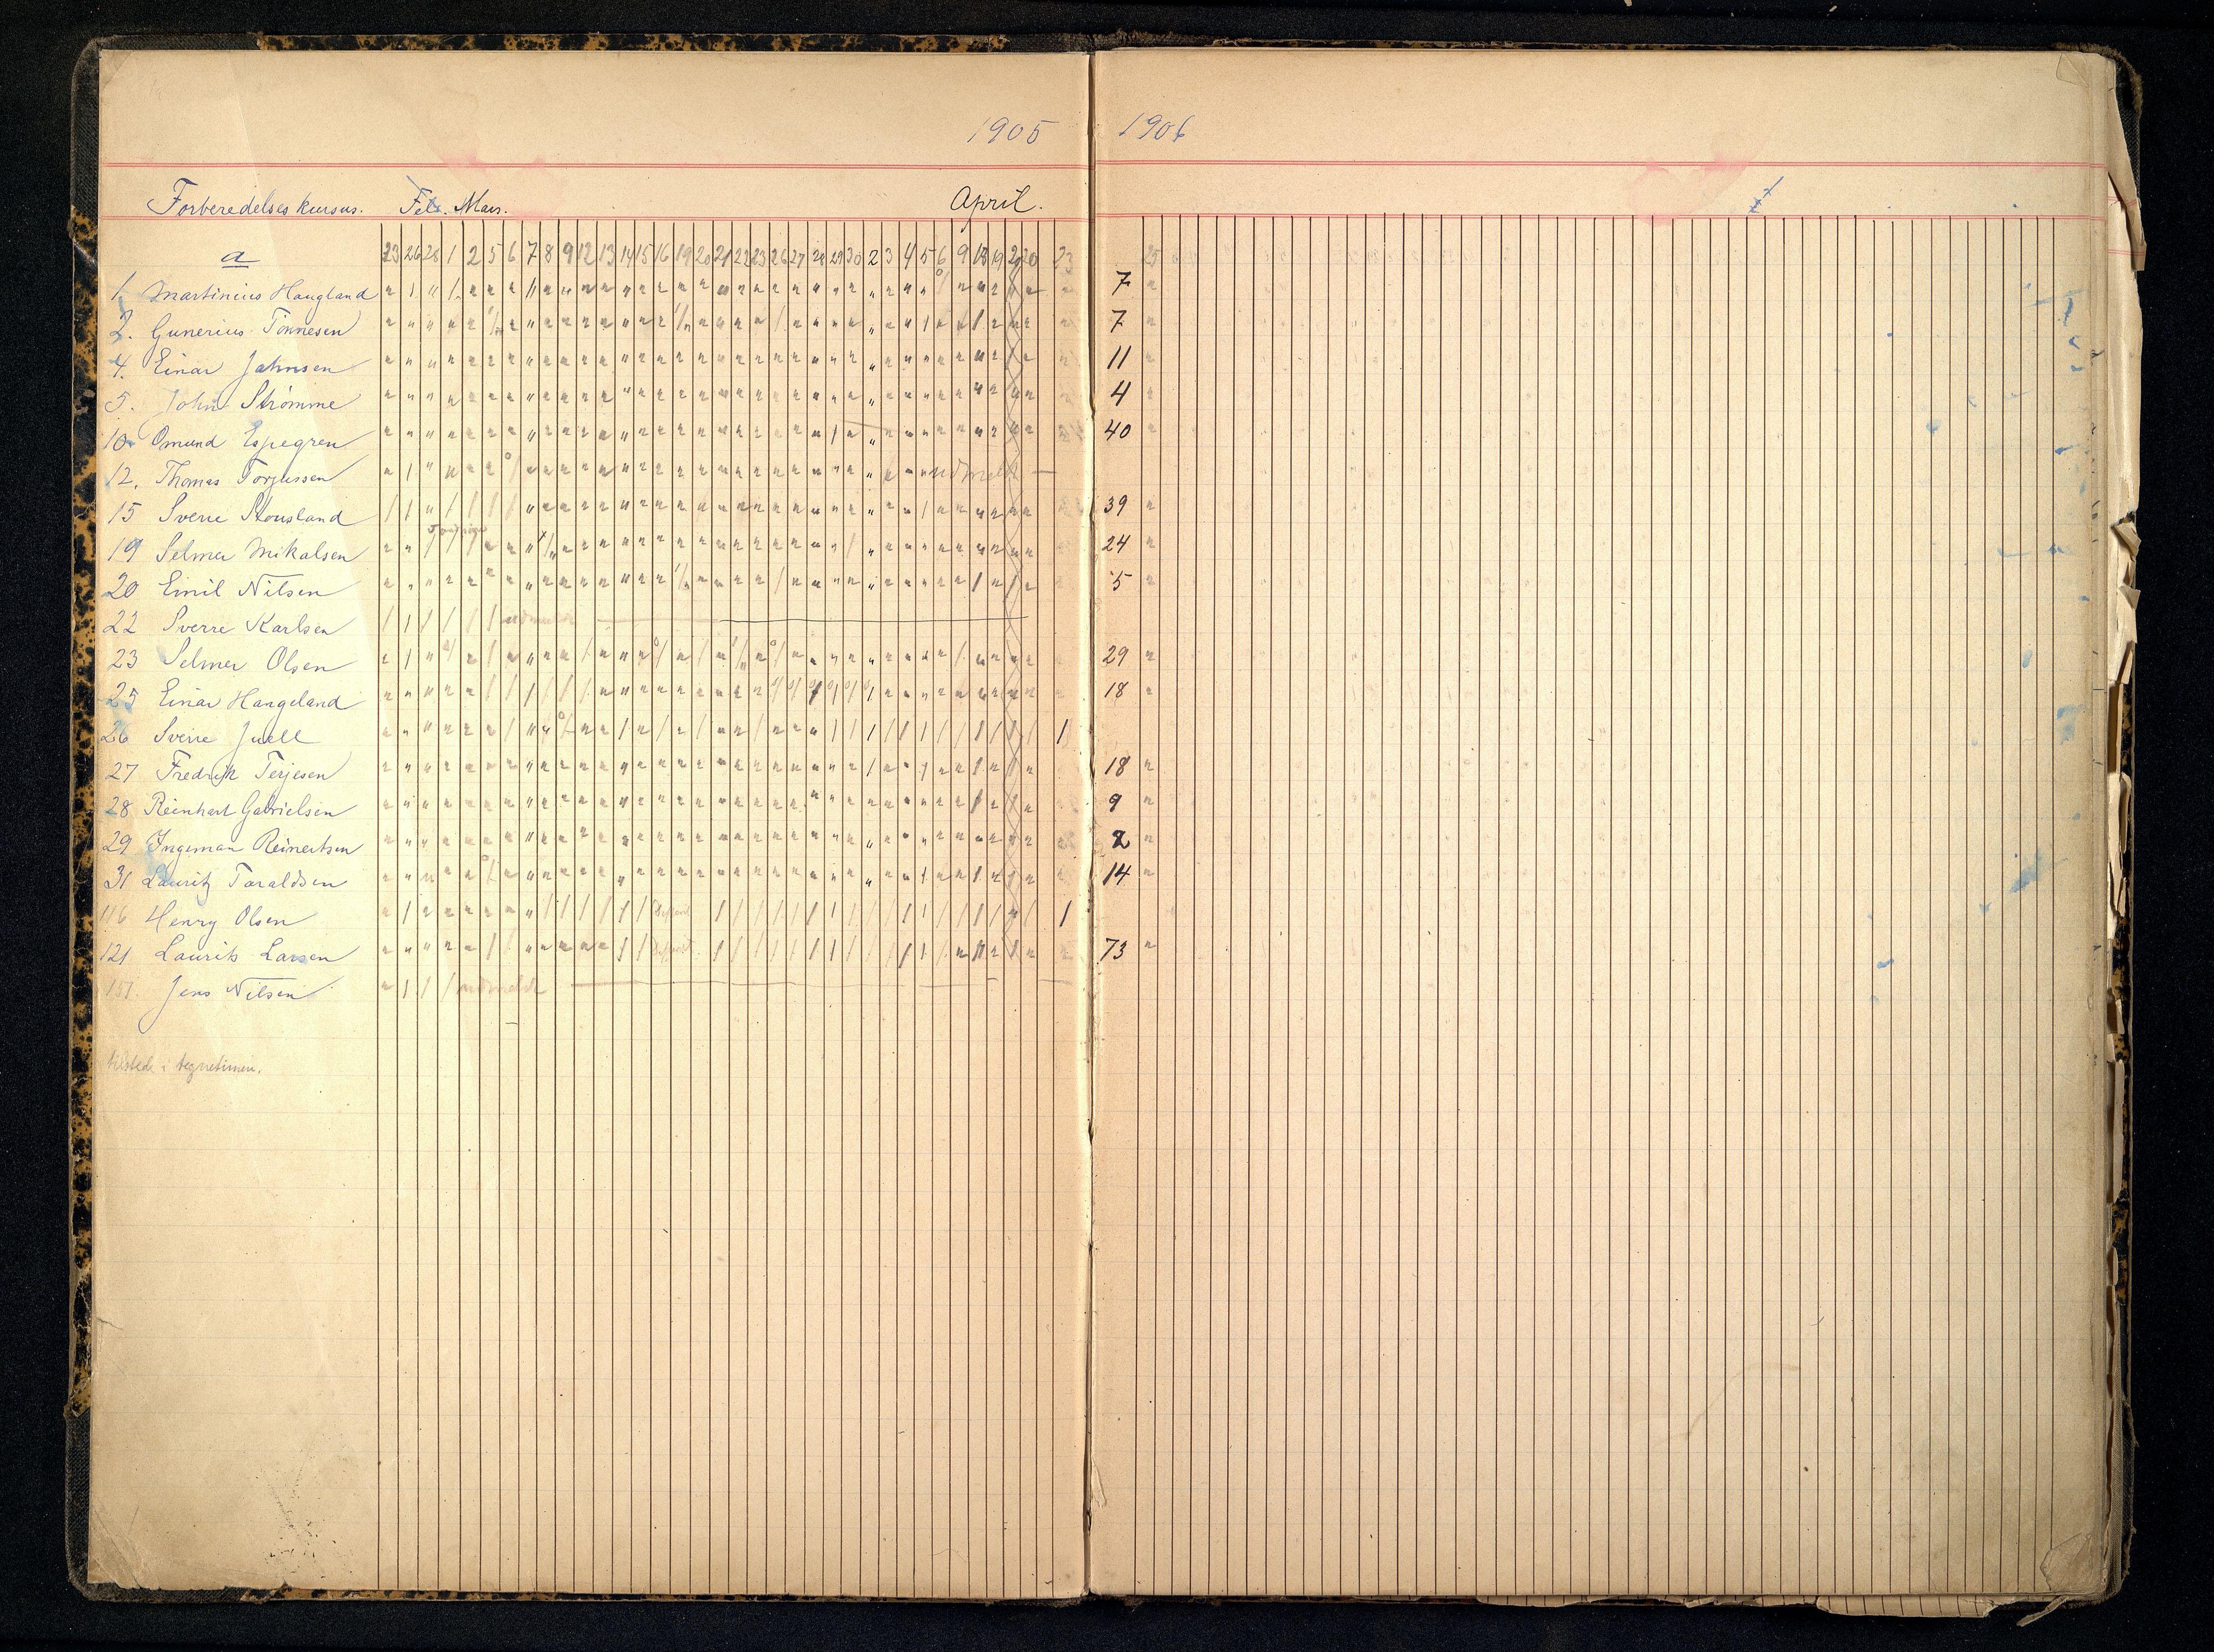 1905 1906
Forberedelseskursus. Feb. Mars. April.
a 23 26 28 1 2 5 6 7 8 9 12 13 14 15 16 19 20 21 22 23 26 27 28 29 30 2 3 4 5 6 9 18 19 20 23 25
1. Martinius Haugland 7
2. Gunerius Tönnesen 7
4. Einar Jahnsen 11
5. John Strömme 4
10 Omund Espegren 40
12. Thomas Torjussen udmeldt
15 Sverre Stousland 39
19 Selmer Mikalsen 24
20 Emil Nilsen 5
22 Sverre Karlsen udmeldt
23 Selmer Olsen 29
25 Einar Haugeland 18
26 Sverre Juell
27 Fredrik Terjesen 18
28 Reinhart Gabrielsen 9
29 Ingeman Reinertsen 2
31 Lauritz Taraldsen 14
116 Henry Olsen
121 Laurits Larsen 73
151. Jens Nilsen udmeldt
tilstede i tegnetimen.